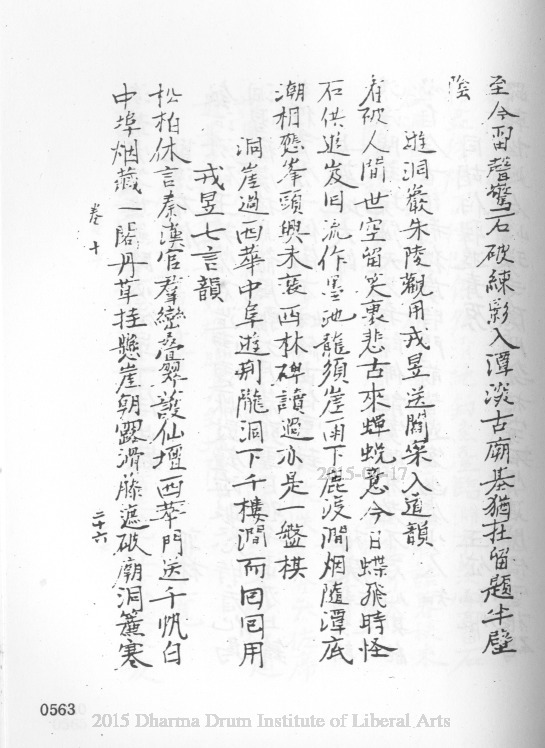 至今留聲驚石破練影入潭淡古廟基猶在留題半壁
陰
遊洞巖朱陵觀用戎昱送閻寀入道韻
看被人間世空留笑裏悲古來蟬蛻意今日蝶飛時怪
石供追崁旧流作墨池龍須崖雨下鹿渡澗烟隨潭底
潮相怒峯頭興未衰西林碑讀過亦是一盤棋
洞崖過西華中阜遊荆龍洞下千樓澗而回回用
戎昱七言韻
松柏休言秦漢官羣巒疊翠護仙壇西華門送千帆白
中埠烟藏一閣丹草挂懸崖朝露滑藤遮破廟洞簾寒
卷十
二十六
2015-04-17
0563
2015 Dharma Drum Institute of Liberal Arts